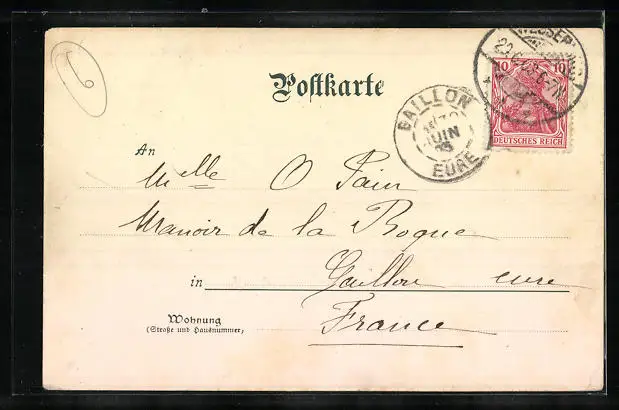 6
Postkarte
10 10
DEUTSCHES REICH
GAILLON
JUIN
EURE
An
Mlle O Pain
Manoir de la Roque
in Gaillon eure
France
Wohnung
(Straße und Hausnummer)